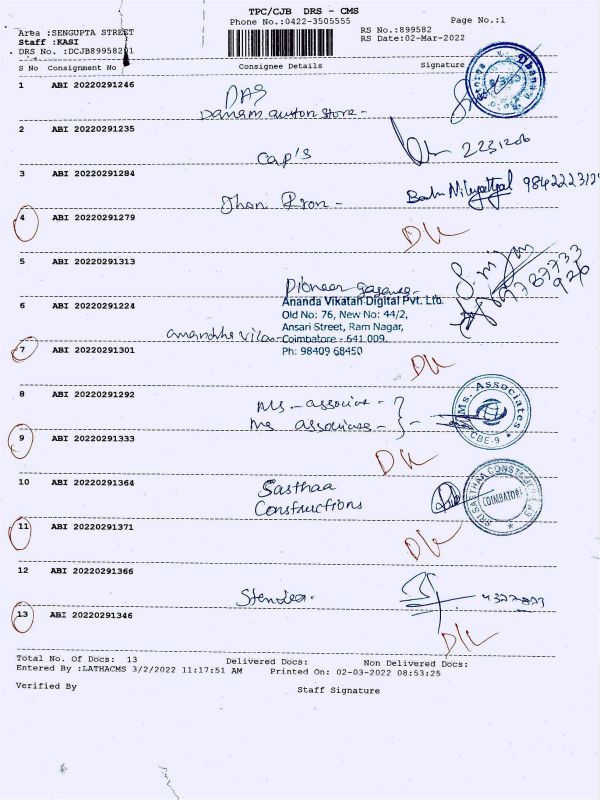 TPC/CJB DRS - CMS
Phone No.:0422-3505555
Page No.:1
Area :SENGUPTA STREET
RS No.:899582
Staff :KASI
RS Date:02-Mar-2022
DRS No. :DCJB89958201
S No Consignment No Consignee Details Signature
1 ABI 20220291246
DAS
store-
2 ABI 20220291235
Cap's
2231206
3 ABI 20220291284
9842223124
4 ABI 20220291279
D/L
5 ABI 20220291313
Pioneer
6 ABI 20220291224
Ananda Vikatan Digital Pvt. Ltd.
Old No: 76, New No: 44/2,
Ansari Street, Ram Nagar,
Coimbatore - 641 009.
Ph: 98409 68450
7 ABI 20220291301
D/L
8 ABI 20220291292
Ms. Associates
CBE-9
9 ABI 20220291333
D/L
10 ABI 20220291364
Sasthaa
Constructions
SRI SASTHAA CONSTRUCTIONS
COIMBATORE
11 ABI 20220291371
D/L
12 ABI 20220291366
13 ABI 20220291346
D/L
Total No. Of Docs: 13 Delivered Docs: Non Delivered Docs:
Entered By :LATHACMS 3/2/2022 11:17:51 AM Printed On: 02-03-2022 08:53:25
Verified By Staff Signature